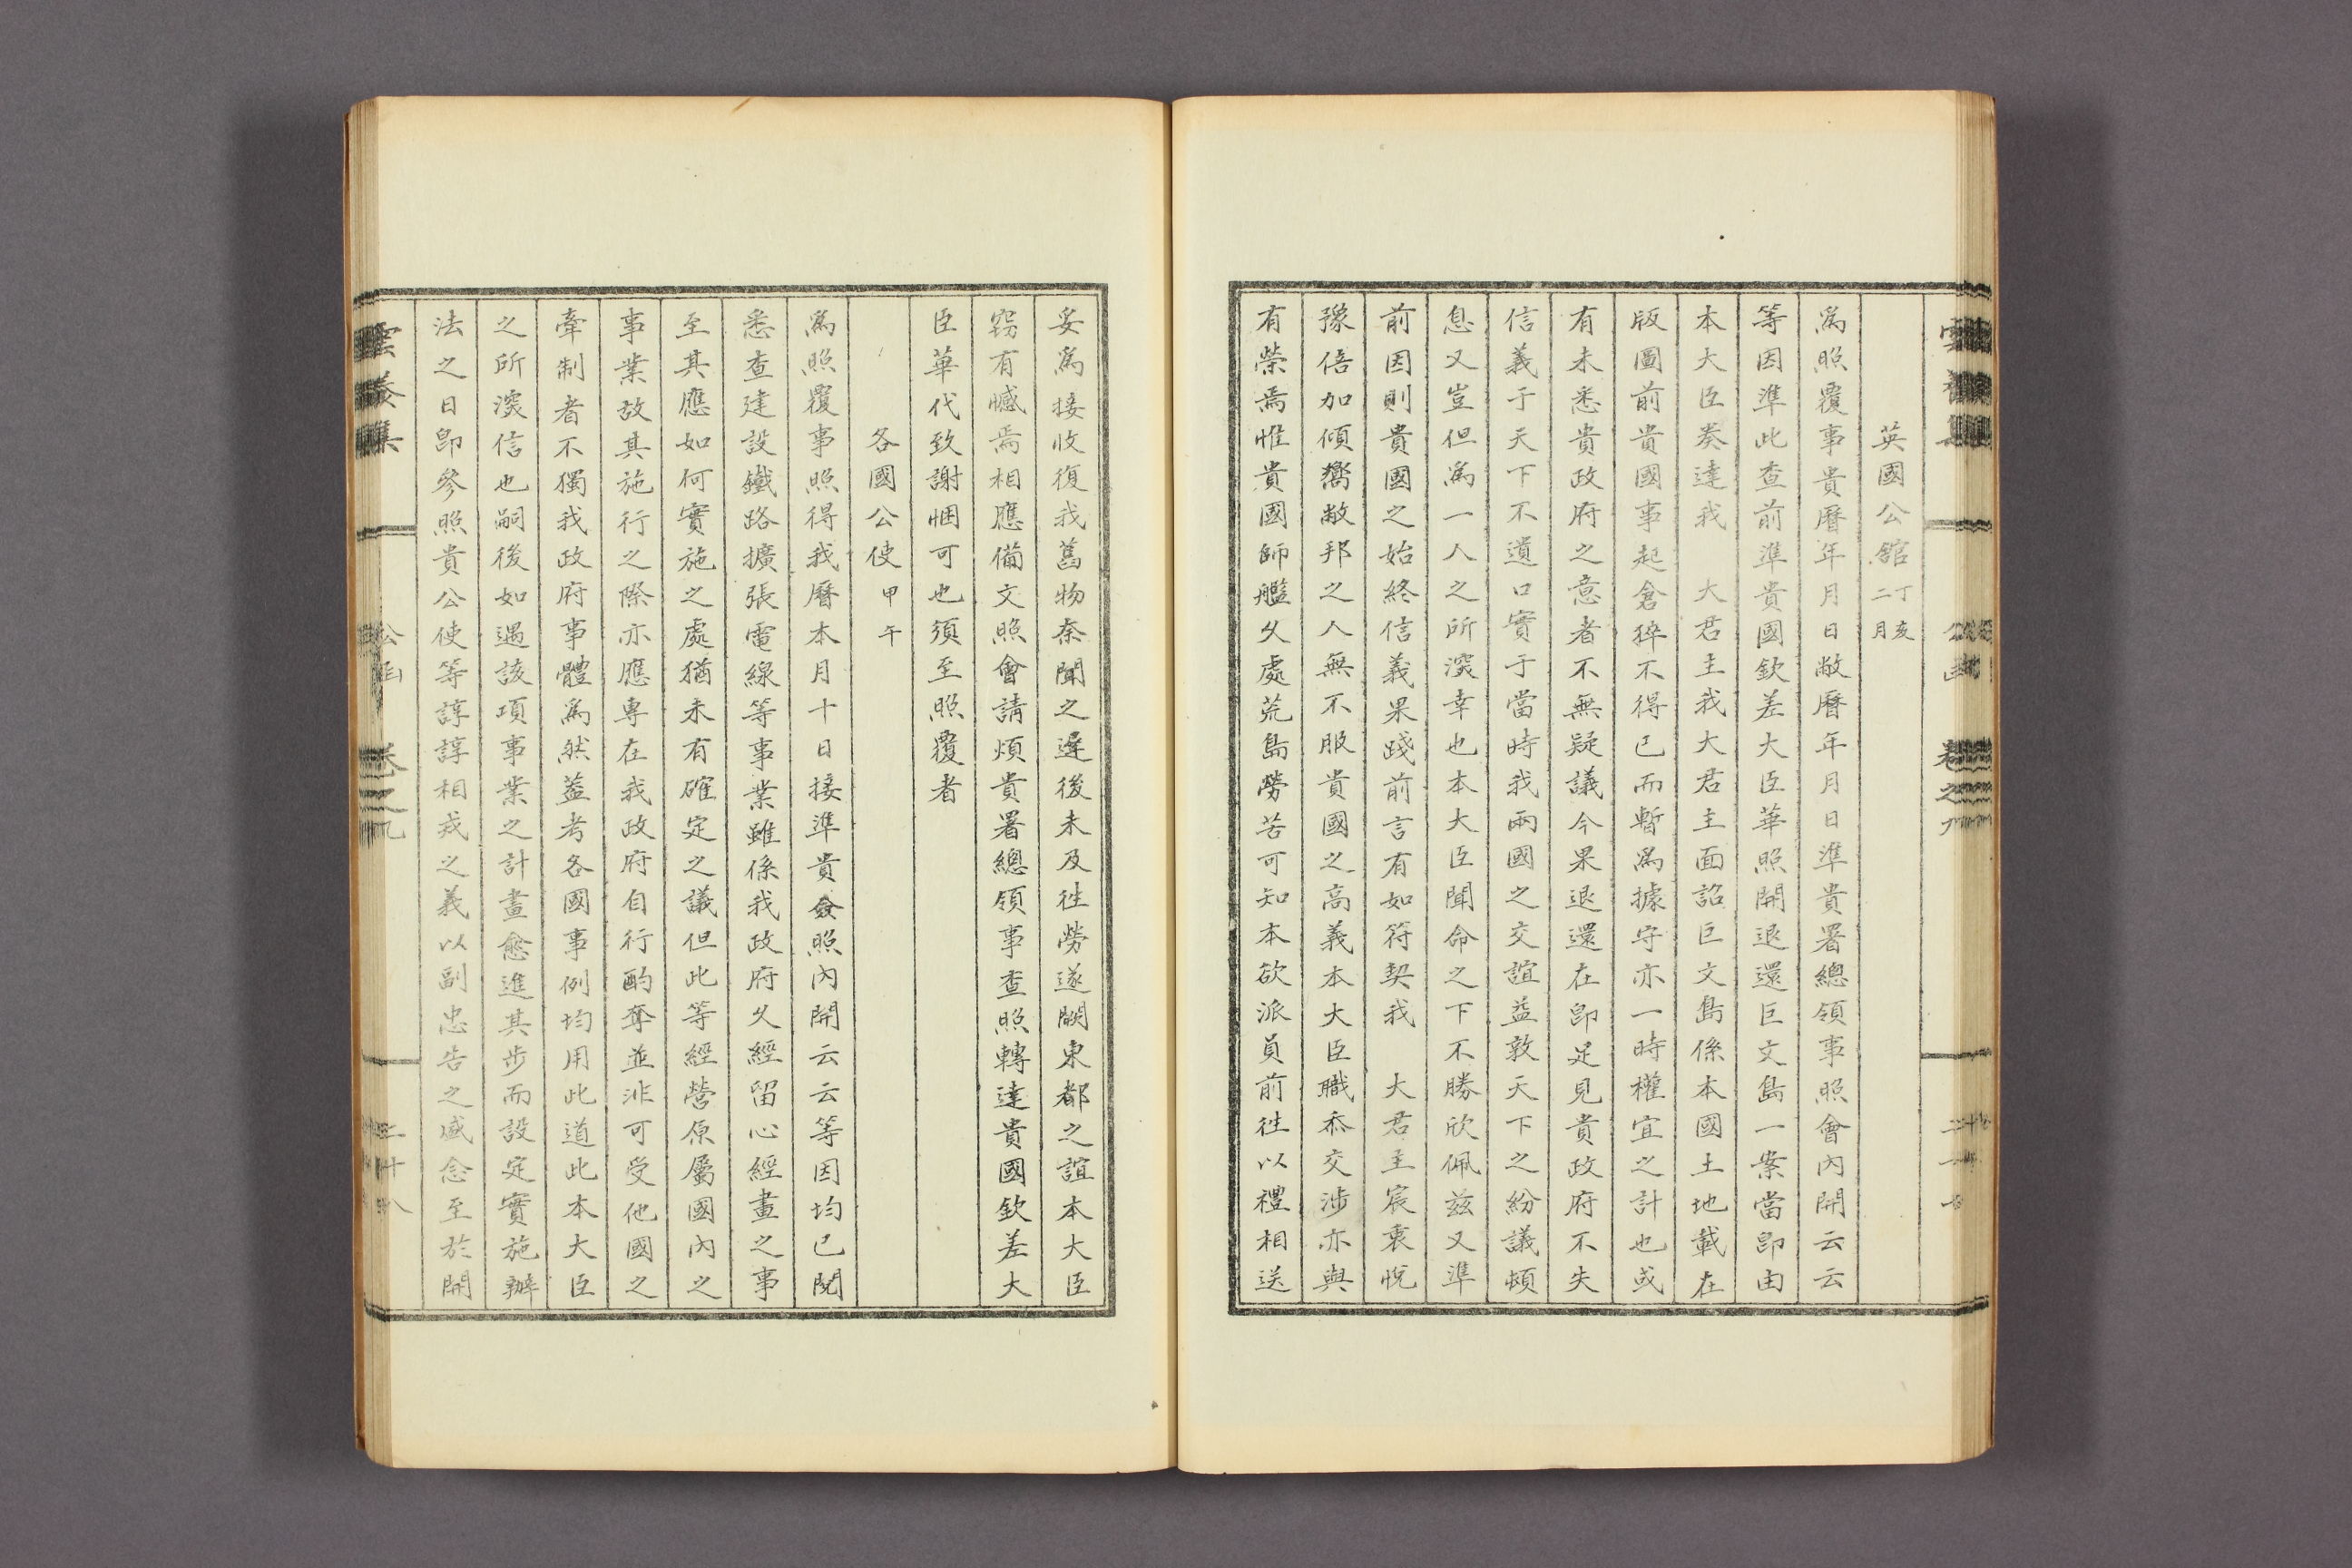 英國公舘 丁亥二月
爲照覆事貴曆年月日敝曆年月日準貴署總領事照會內開云云
等因準此查前準貴國欽差大臣華照開退還巨文島一案當卽由
本大臣奏達我 大君主我大君主面諮巨文島係本國土地載在
版圖前貴國事起倉猝不得已而暫爲據守亦一時權宜之計也或
有未悉貴政府之意者不無疑議今果退還在卽足見貴政府不失
信義于天下不遺口實于當時我兩國之交誼益敦天下之紛議頓
息又豈但爲一人之所深幸也本大臣聞命之下不勝欣佩玆又準
前因則貴國之始終信義果踐前言有如符契我 大君主宸衷悅
豫倍加傾嚮敝邦之人無不服貴國之高義本大臣職忝交涉亦與
有榮焉惟貴國師艦久處荒島勞苦可知本欲派員前往以禮相送
妥爲接收復我舊物奈聞之遲後未及徃勞遂闕東都之誼本大臣
竊有憾焉相應備文照會請煩貴署總領事查照轉達貴國欽差大
臣華代致謝悃可也須至照覆者
各國公使 甲午
爲照覆事照得我曆本月十日接準貴僉照內開云云等因均已閱
悉查建設鐵路擴張電線等事業雖係我政府久經留心經畫之事
至其應如何實施之處猶未有確定之議但此等經營原屬國內之
事業故其施行之際亦應專在我政府自行酌奪並非可受他國之
牽制者不獨我政府事體爲然蓋考各國事例均用此道此本大臣
之所深信也嗣後如遇該項事業之計畫愈進其步而設定實施辦
法之日卽參照貴公使等諄諄相戒之義以副忠告之盛念至於開
雲養集 公函 卷之九 二十八